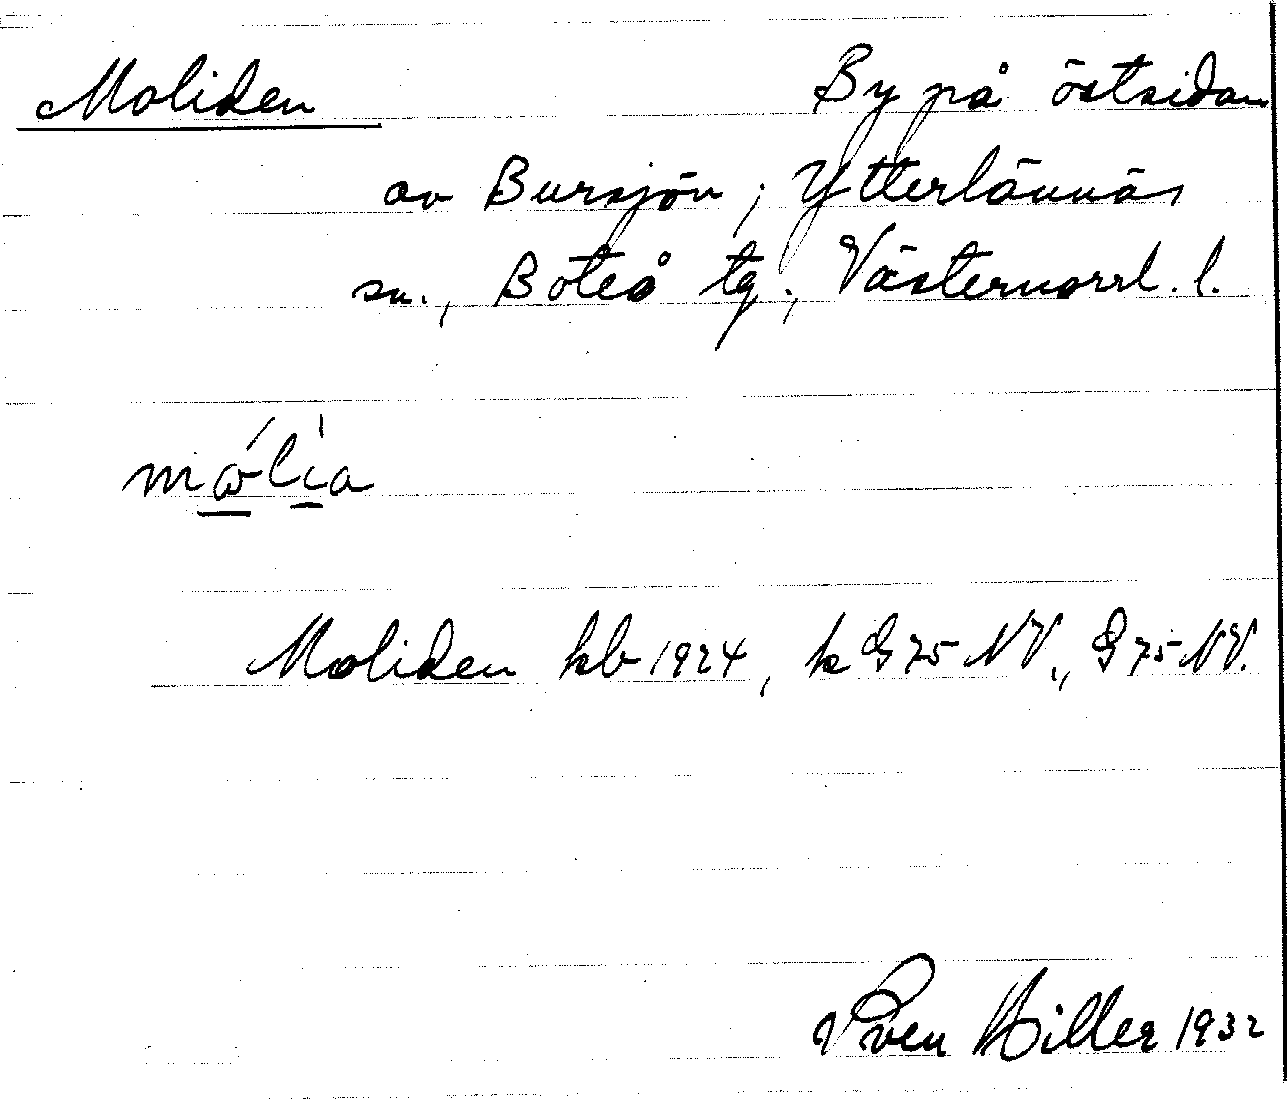 Moliden By på östsidan
av Bursjön, Ytterlännäs
sn., Boteå tg., Västernorrl. l.
mólia
Moliden kb 1924, k G 75 NV., G 75 NV.
Sven Hiller 1932